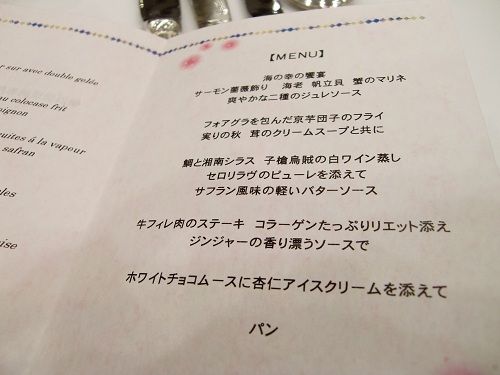 sur avec double gelée
au colocase frit
pignon
cuites à la vapeur
safran
【MENU】
海の幸の饗宴
サーモン薔薇飾り 海老 帆立貝 蟹のマリネ
爽やかな二種のジュレソース
フォアグラを包んだ京芋団子のフライ
実りの秋 茸のクリームスープと共に
鯛と湘南シラス 子槍烏賊の白ワイン蒸し
セロリラヴのピューレを添えて
サフラン風味の軽いバターソース
牛フィレ肉のステーキ コラーゲンたっぷりリエット添え
ジンジャーの香り漂うソースで
ホワイトチョコムースに杏仁アイスクリームを添えて
パン